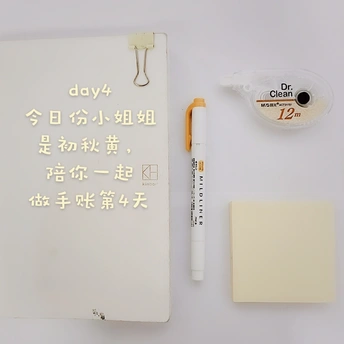 day4
今日份小姐姐
是初秋黄，
陪你一起
做手账第4天
Dr.
Clean
12m
MILDLINER